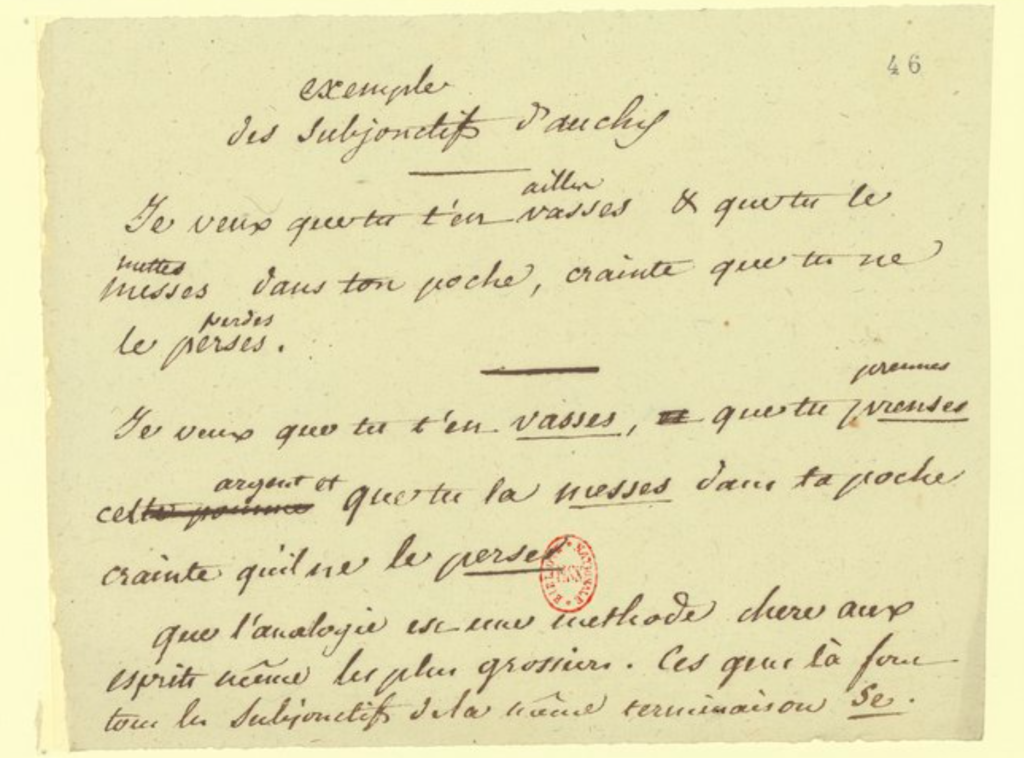 46
exemple
des Subjonctifs d'auchy
ailles
Je veux que tu t'en vasses & que tu le
mettes
messes dans ton poche, crainte que tu ne
perdes
le perses.
prennes
Je veux que tu t'en vasses, et que tu prenses
argent et
cette pomme que tu la messes dans ta poche
crainte qu'il ne le perses
que l'analogie est une methode chere aux
esprits même les plus grossiers. Ces gens là font
tous les Subjonctifs de la même terminaison Se.